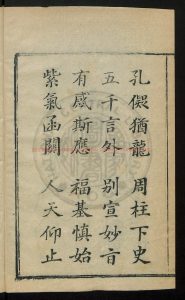 孔猶龍 周柱下史
五千言外 別宣妙旨
有感斯應 福基慎始
紫氣函關 人天仰止